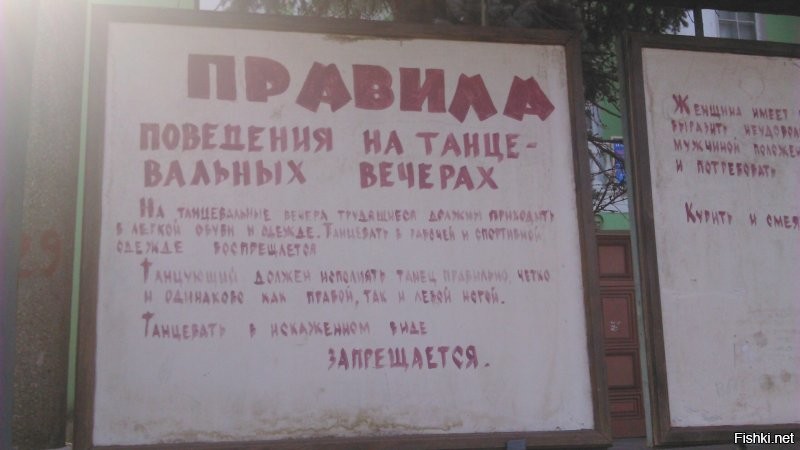 ПРАВИЛА
ПОВЕДЕНИЯ НА ТАНЦЕ-
ВАЛЬНЫХ ВЕЧЕРАХ
НА ТАНЦЕВАЛЬНЫЕ ВЕЧЕРА ТРУДЯЩИЕСЯ ДОЛЖНЫ ПРИХОДИТЬ
В ЛЕГКОЙ ОБУВИ И ОДЕЖДЕ. ТАНЦЕВАТЬ В РАБОЧЕЙ И СПОРТИВНОЙ
ОДЕЖДЕ ВОСПРЕЩАЕТСЯ
ТАНЦУЮЩИЙ ДОЛЖЕН ИСПОЛНЯТЬ ТАНЕЦ ПРАВИЛЬНО, ЧЕТКО
И ОДИНАКОВО КАК ПРАВОЙ, ТАК И ЛЕВОЙ НОГОЙ.
ТАНЦЕВАТЬ В ИСКАЖЕННОМ ВИДЕ
ЗАПРЕЩАЕТСЯ.
ЖЕНЩИНА ИМЕЕТ
ВЫРАЗИТЬ НЕУДОВОЛ
МУЖЧИНОЙ ПОЛОЖЕН
И ПОТРЕБОВАТЬ
КУРИТЬ И СМЕЯ
29
Fishki.net